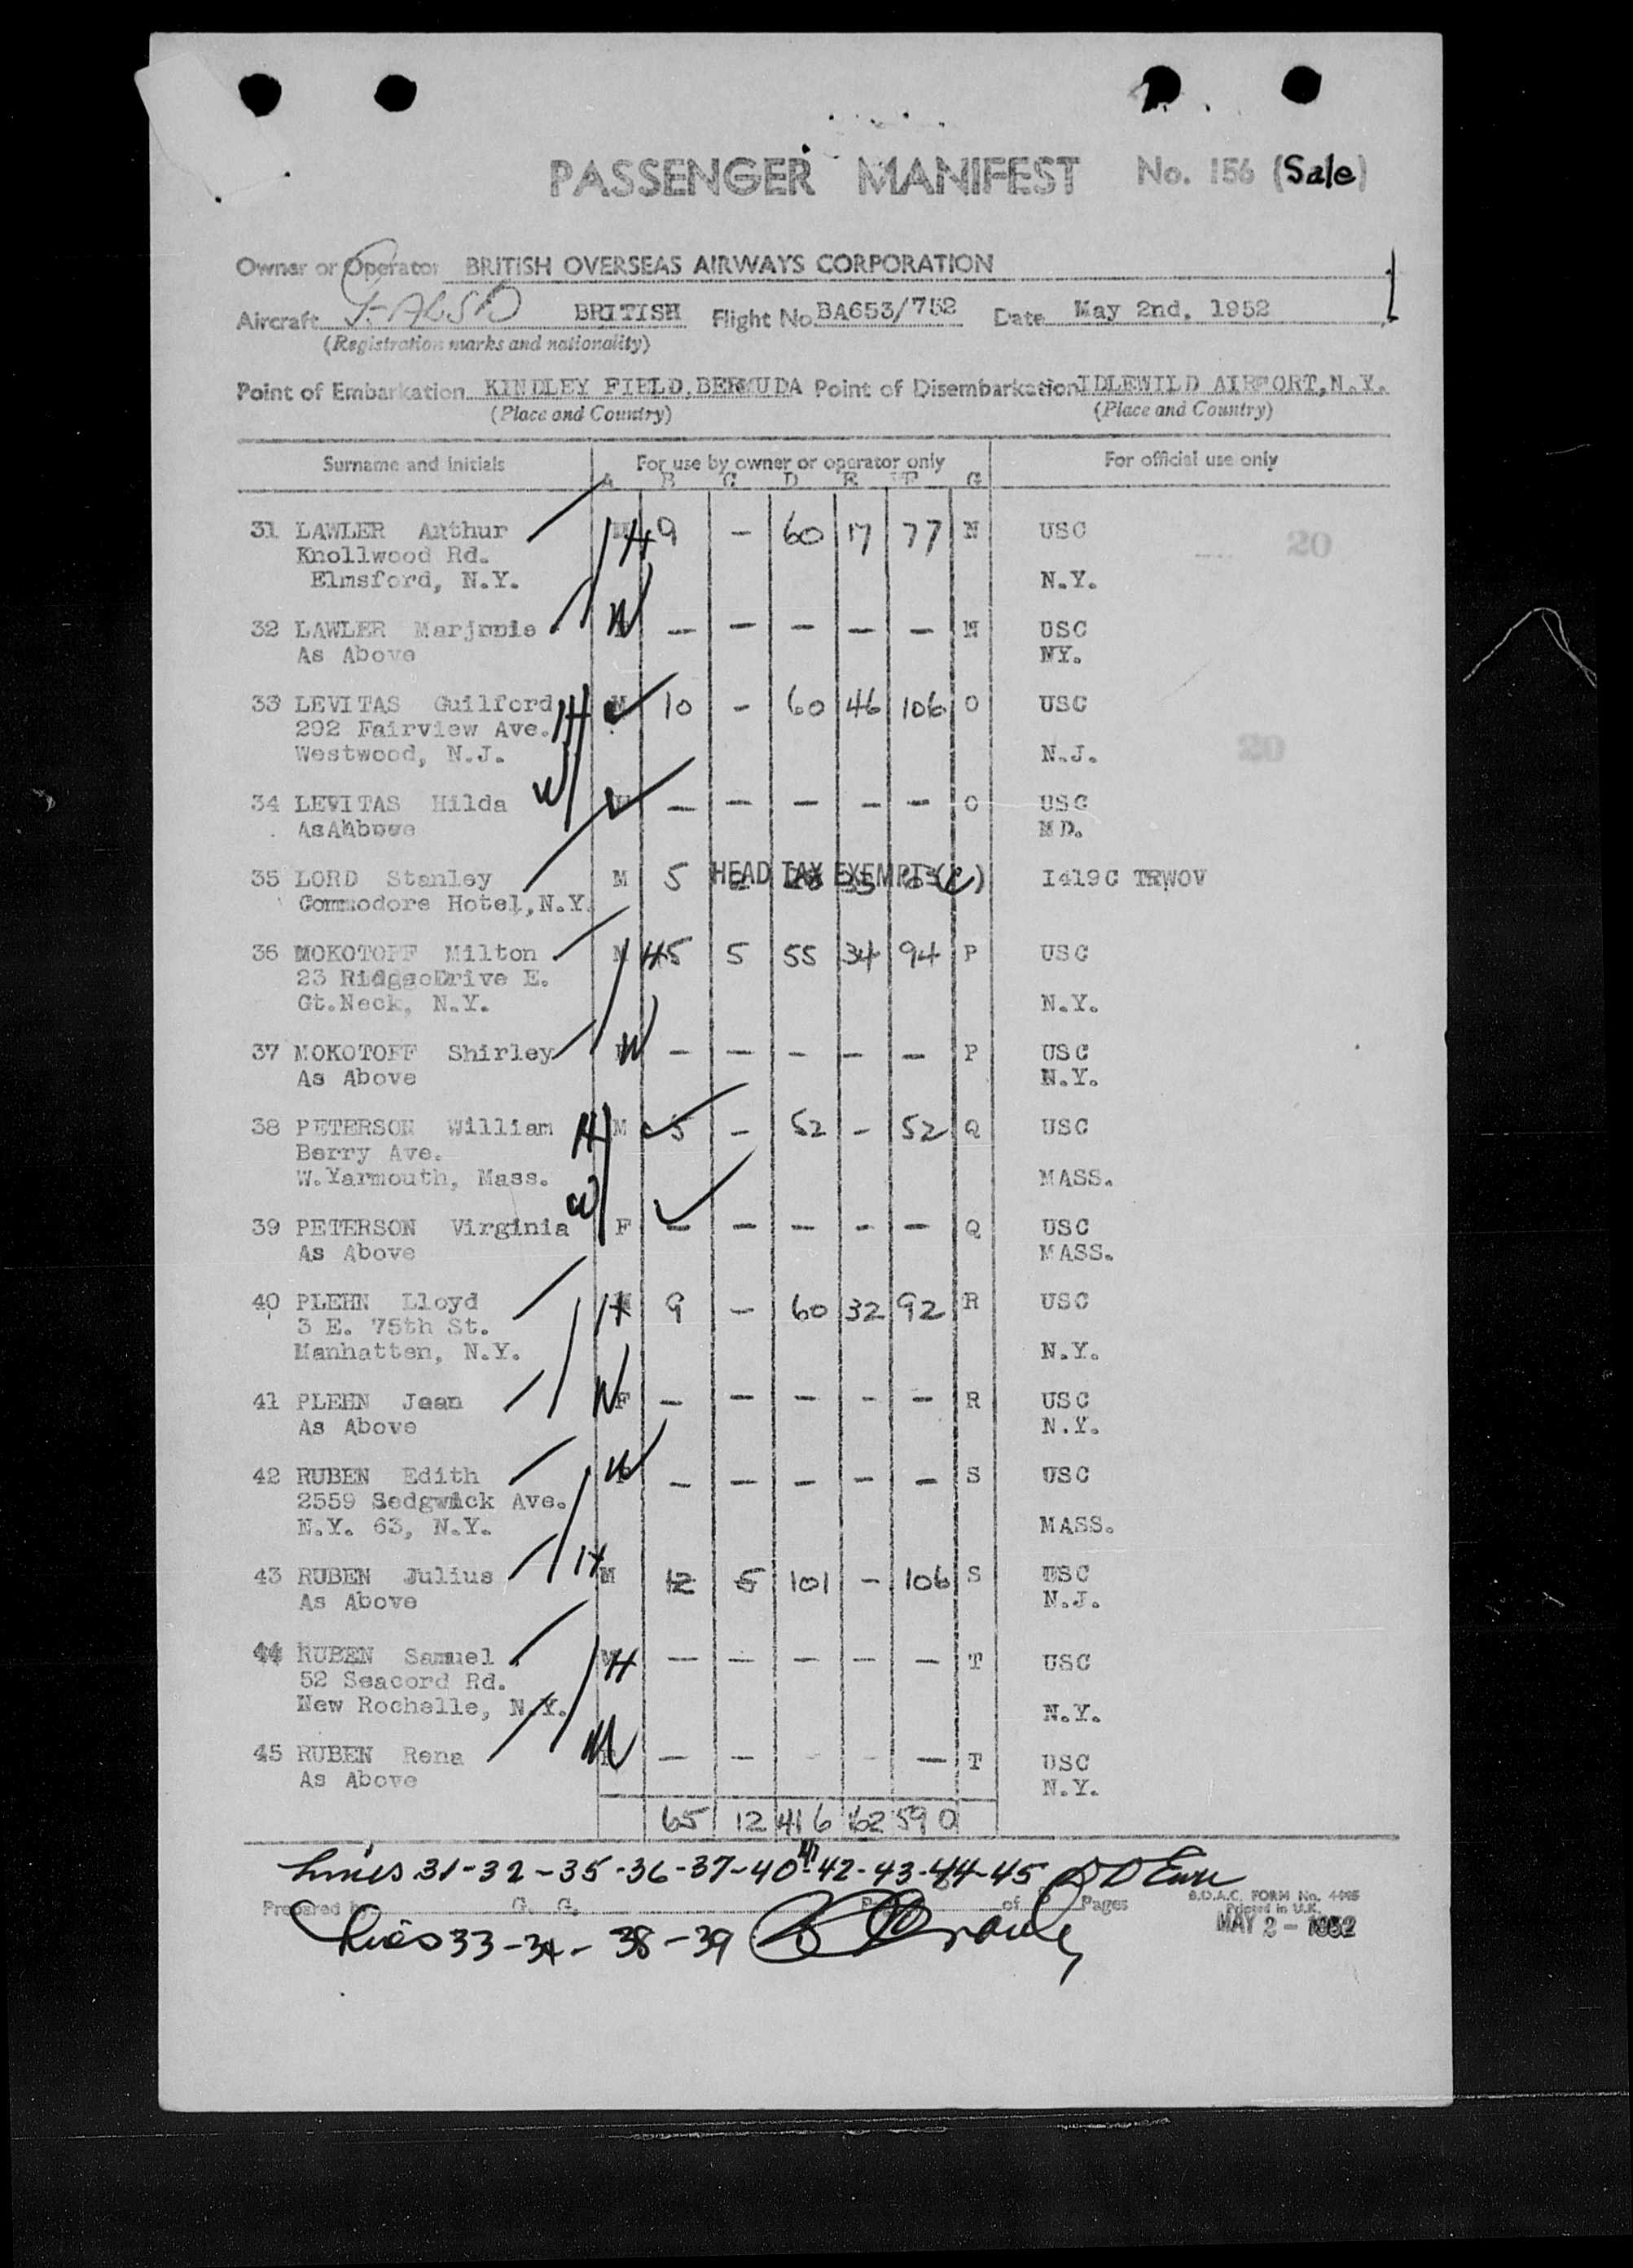 PASSENGER MANIFEST No. 156 (Sale)
Owner or Operator BRITISH OVERSEAS AIRWAYS CORPORATION
Aircraft BRITISH Flight No. BA653/752 Date May 2nd. 1952
(Registration marks and nationality)
Point of Embarkation KINDLEY FIELD, BERMUDA Point of Disembarkation IDLEWILD AIRPORT, N.Y.
(Place and Country) (Place and Country)
Surname and initials For use by owner or operator only For official use only
A B C D E F G
31 LAWLER Arthur H 9 - 60 17 77 N USC 20
Knollwood Rd.
Elmsford, N.Y. N.Y.
32 LAWLER W - - - - - N USC
As Above NY.
33 LEVITAS Guilford H M 10 - 60 46 106 O USC
292 Fairview Ave.
Westwood, N.J. N.J. 20
34 LEVITAS Hilda W - - - - - O USC
AsAAbove MD.
35 LORD Stanley M 5 HEAD TAX EXEMPT (C) I419C TRWOV
Commodore Hotel, N.Y.
36 MOKOTOFF Milton M H 5 5 55 34 94 P USC
23 Drive E.
Gt.Neck, N.Y. N.Y.
37 MOKOTOFF Shirley W - - - - - P USC
As Above N.Y.
38 PETERSON William H M 5 - 52 - 52 Q USC
Berry Ave.
W.Yarmouth, Mass. MASS.
39 PETERSON Virginia W F - - - - - Q USC
As Above MASS.
40 PLEHN Lloyd H 9 - 60 32 92 R USC
3 E. 75th St.
Manhatten, N.Y. N.Y.
41 PLEHN Jean W F - - - - - R USC
As Above N.Y.
42 RUBEN Edith W - - - - - S USC
2559 Sedgwick Ave.
N.Y. 63, N.Y. MASS.
43 RUBEN Julius H M 12 5 101 - 106 S USC
As Above N.J.
44 RUBEN Samuel M H - - - - - T USC
52 Seacord Rd.
New Rochelle, N.Y. N.Y.
45 RUBEN Rena W - - - - - T USC
As Above N.Y.
65 12 416 162 590
Lines 31-32-35-36-37-40-41-42-43-44-45
Prepared by G. G. of Pages B.O.A.C. FORM No. 4445
Printed in U.K.
Lines 33-34-38-39 MAY 2 - 1952